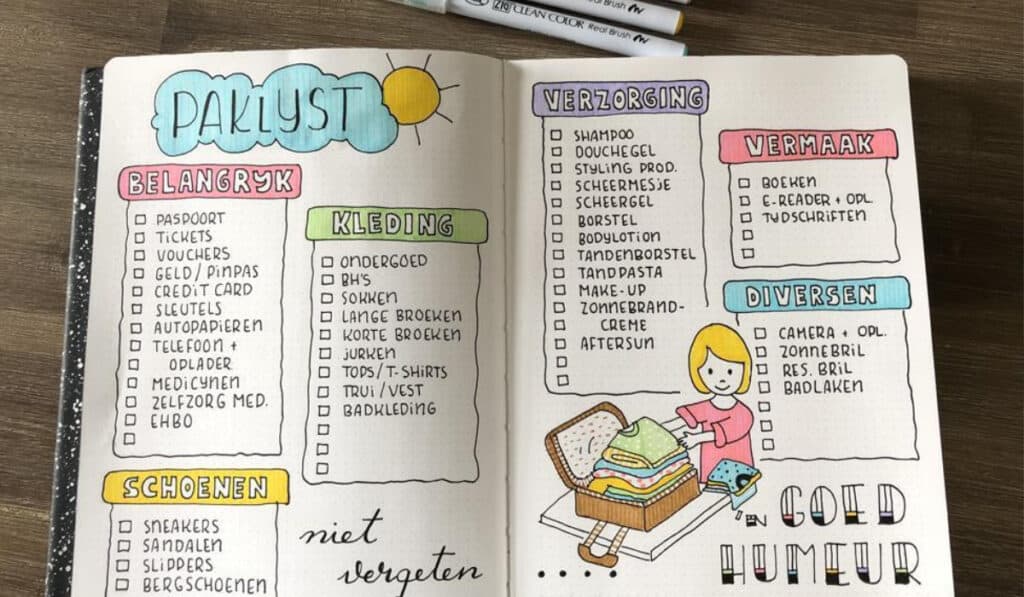 ZIG CLEAN COLOR Real Brush
Real Brush
PAKLYST
BELANGRYK
PASPOORT
TICKETS
VOUCHERS
GELD/PINPAS
CREDIT CARD
SLEUTELS
AUTOPAPIEREN
TELEFOON +
OPLADER
MEDICYNEN
ZELFZORG MED.
EHBO
KLEDING
ONDERGOED
BH'S
SOKKEN
LANGE BROEKEN
KORTE BROEKEN
JURKEN
TOPS/T-SHIRTS
TRUI/VEST
BADKLEDING
SCHOENEN
SNEAKERS
SANDALEN
SLIPPERS
BERGSCHOENEN
niet
vergeten
VERZORGING
SHAMPOO
DOUCHEGEL
STYLING PROD.
SCHEERMESJE
SCHEERGEL
BORSTEL
BODYLOTION
TANDENBORSTEL
TANDPASTA
MAKE-UP
ZONNEBRAND-
CREME
AFTERSUN
VERMAAK
BOEKEN
E-READER + OPL.
TYDSCHRIFTEN
DIVERSEN
CAMERA + OPL.
ZONNEBRIL
RES. BRIL
BADLAKEN
....
'N GOED
HUMEUR